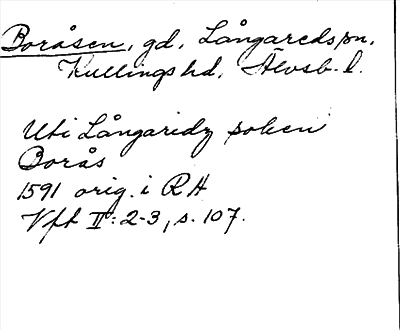 Boråsen, gd, Långareds sn,
Kullings hd, Älvsb. l.
Uti Långaridz soken
Borås
1591 orig. i RA
Vft II: 2-3, s. 107.